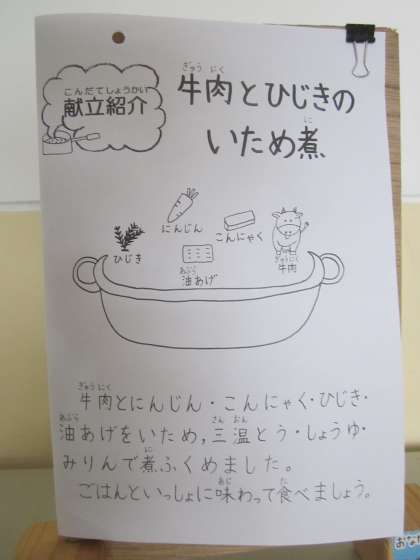 こんだてしょうかい
献立紹介
ぎゅう にく
牛肉とひじきの
に
いため煮
にんじん
こんにゃく
ひじき
あぶら
油あげ
ぎゅうにく
牛肉
ぎゅう にく
牛肉とにんじん・こんにゃく・ひじき・
あぶら さん おん
油あげをいため,三温とう・しょうゆ・
に
みりんで煮ふくめました。
あじ た
ごはんといっしょに味わって食べましょう。